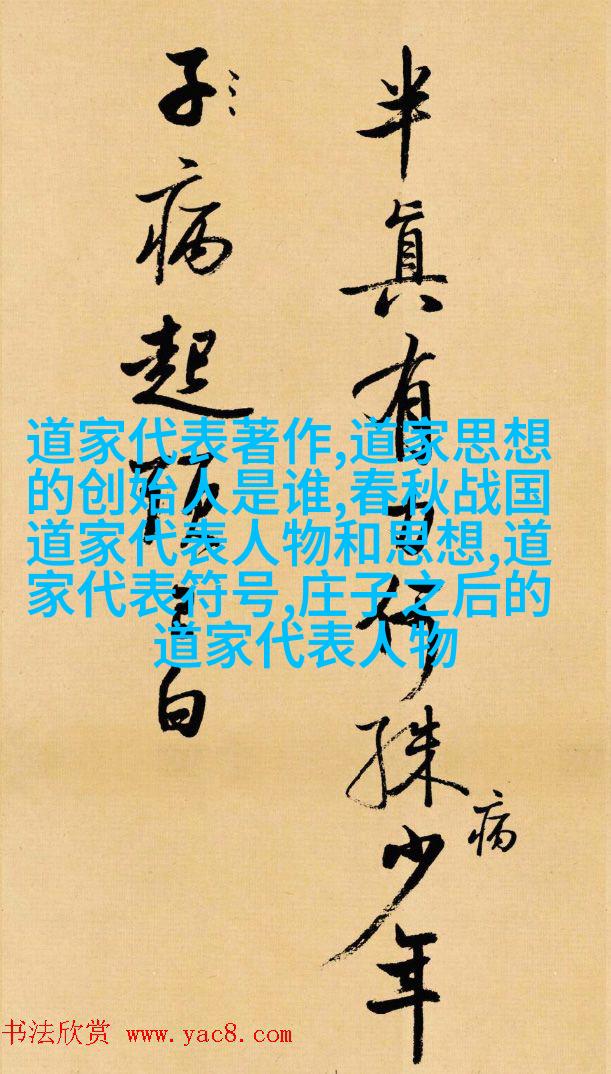 半真有何殊少年
病
子病起白
道家代表著作,道家思想
的创始人是谁,春秋战国
道家代表人物和思想,道
家代表符号,庄子之后的
道家代表人物
书法欣赏 www.yac8.com